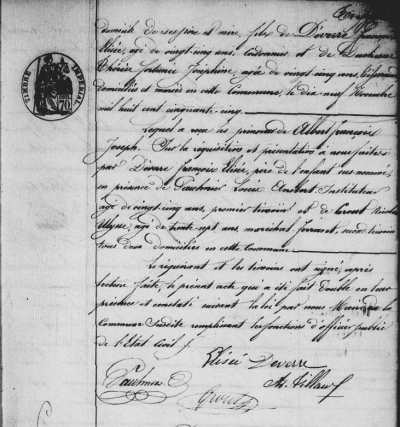 domicile de ses père et mère, fils de Déverre François
Elisée, agé de vingt cinq ans, cordonnier et de
Thérèse Hortence Joséphine, agée de vingt cinq ans,
domiciliés et mariés en cette Commune, le dix neuf Novembre
mil huit cent cinquante cinq.
Lequel a reçu les prénoms de Albert françois
Joseph. Sur la réquisition et présentation à nous faites
par Déverre François Elisée, père de l'enfant sus nommé,
en présence de Louis Instituteur
agé de vingt cinq ans, premier témoin et de Crout Nicolas
Ulysse, agé de trente sept ans maréchal ferrant, second témoin
tous deux domiciliés en cette Commune.
Le réquérant et les témoins ont signé, après
lecture faite, le présent acte qui a été fait double en leur
présence et constaté suivant la loi par nous Maire de la
Commune susdite remplissant les fonctions d'officier public
de l'Etat Civil.
Elisée Deverre
Crout
TIMBRE IMPERIAL
70